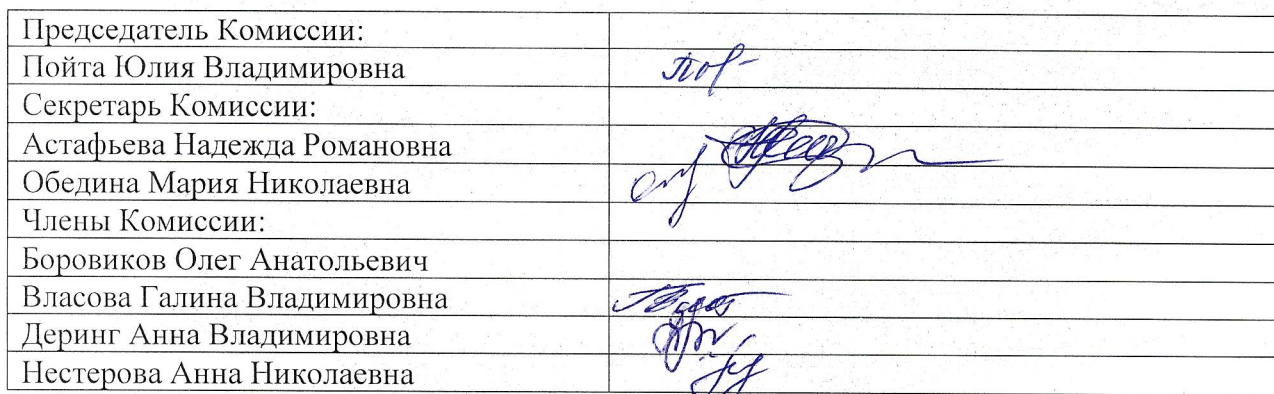 Председатель Комиссии:
Пойта Юлия Владимировна
Секретарь Комиссии:
Астафьева Надежда Романовна
Обедина Мария Николаевна
Члены Комиссии:
Боровиков Олег Анатольевич
Власова Галина Владимировна
Деринг Анна Владимировна
Нестерова Анна Николаевна